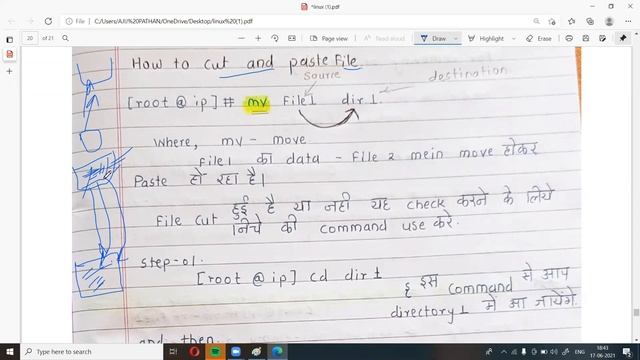 *linux (1).pdf
C:/Users/AJIJ%20PATHAN/OneDrive/Desktop/linux%20(1).pdf
20 of 21
Page view
Read aloud
Draw
Highlight
Erase
How to cut and paste File
Source
destination
[root @ ip] # mv File1 dir1.
Where, mv - move
File1 का data - File 2 mein move होकर
Paste हो रहा है।
File cut हुई है या नही यह check करने के लिये
निचे की command use करे.
step-01.
[root @ ip] cd dir1
इस command से आप
directory1 में आ जायेंगे.
and then.
Type here to search
ENG
18:43
17-06-2021